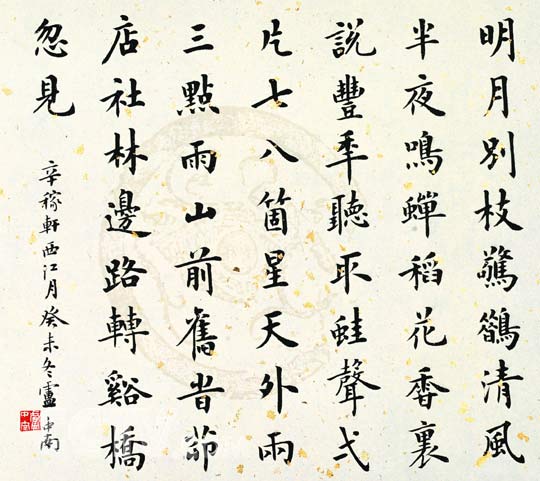 明月別枝驚鵲清風
半夜鳴蟬稻花香裏
說豐秊聽取蛙聲弌
片七八箇星天外兩
三點雨山前舊旹茆
店社林邊路轉谿橋
忽見
辛稼軒西江月癸未冬盧中南